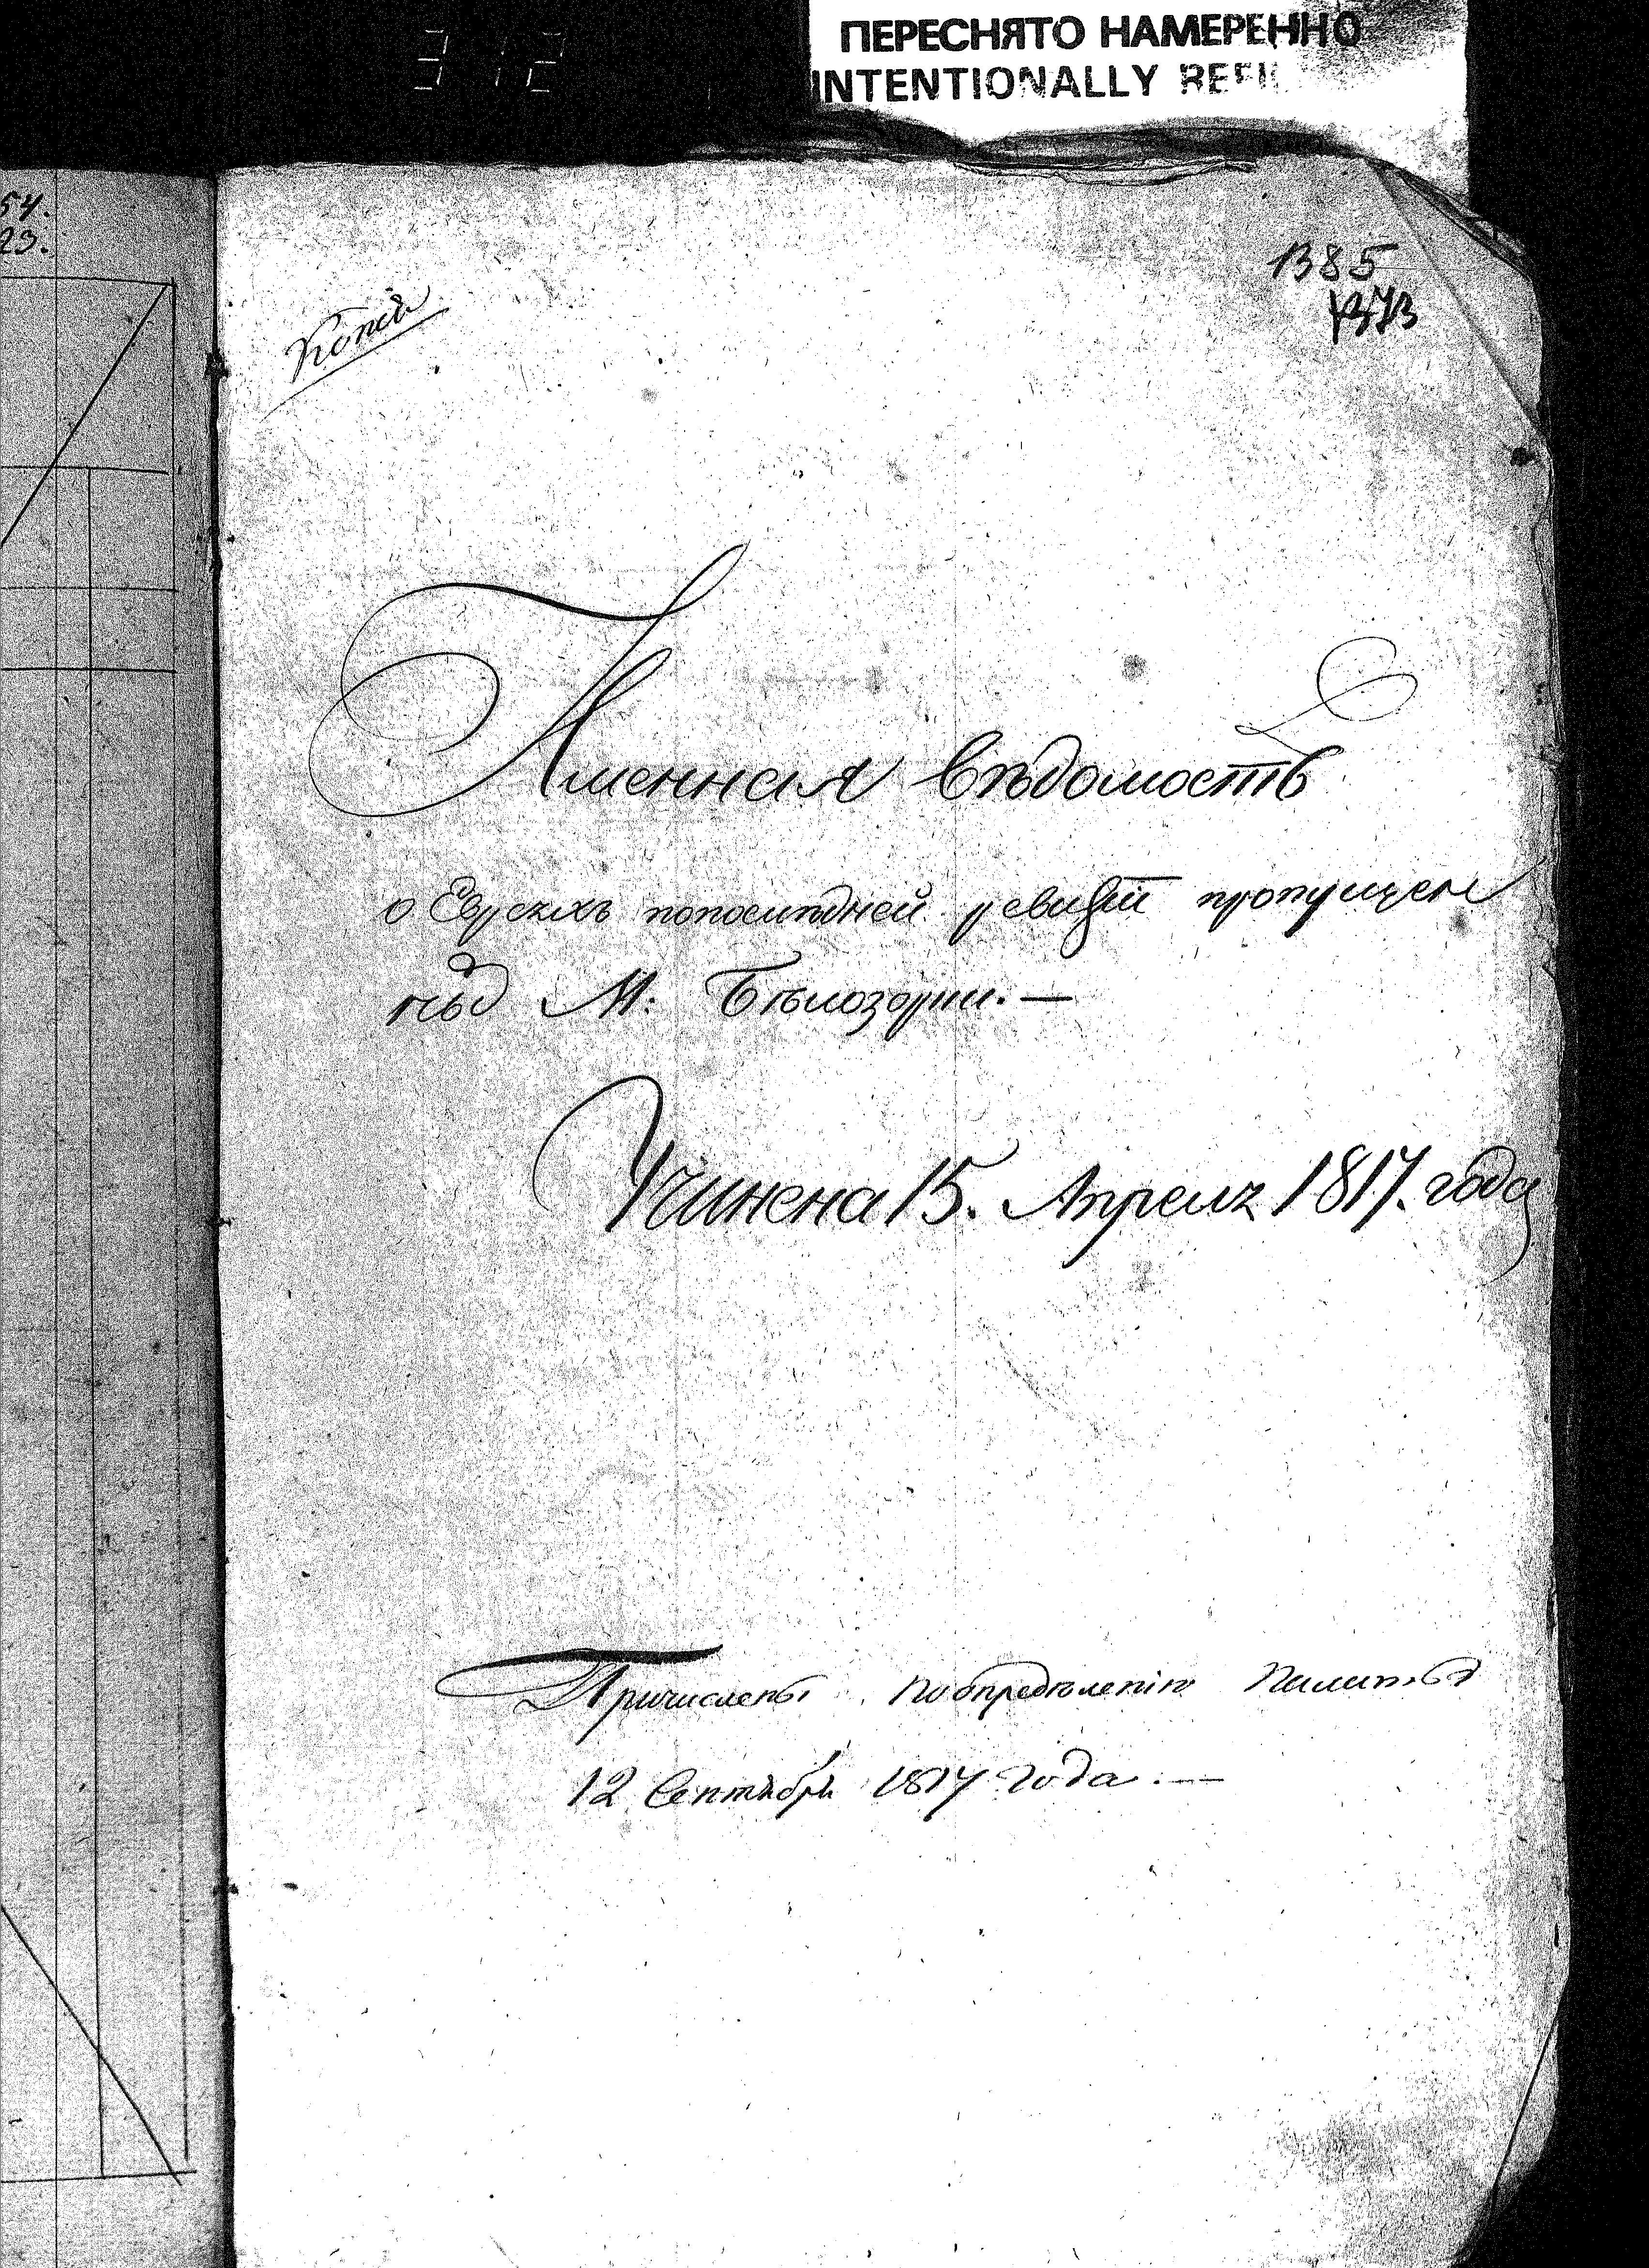 ПЕРЕСНЯТО НАМЕРЕННО
INTENTIONALLY
54.
23.
1385
1373
Копія
Именная вѣдомость
о Еврѣяхъ попослѣдней ревизіи пропущен
ныхъ М: Бѣлозорки. —
Учинена 15. Апреля 1817. года
Причислены поопредѣленію Палаты
12 Сентября 1817 года. —